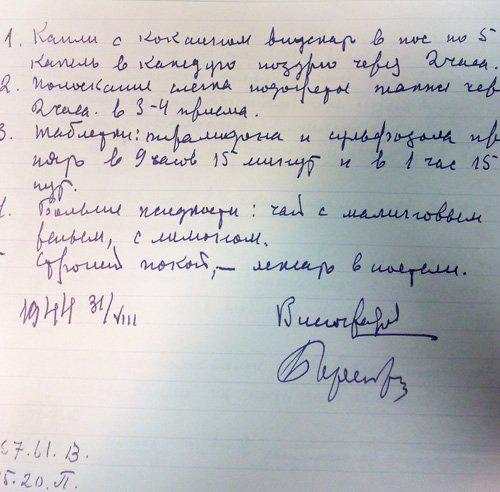 1. Капли с кокаином вискапь в нос по 5
капель в каждую ноздрю через 2 часа.
2. Полоскание слегка подогретое также чер
2 часа. в 3-4 приема.
3. Таблетки: пирамидона и сульфозола пр
нять в 9 часов 15 минут и в 1 час 15
нут.
Больше жидкости: чай с малиновым
реньем, с лимоном.
Строгий покой, – лежать в постели.
1944 31/VIII
Виноградов
67.61.В.
5.20.П.